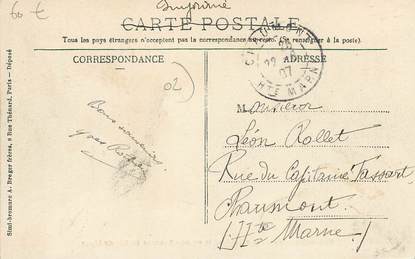 60 €
Imprimé
CARTE POSTALE
Tous les pays étrangers n'acceptent pas la correspondance au recto. (Se renseigner à la poste).
CORRESPONDANCE
ADRESSE
CHAUMONT
07
HTE MARNE
02
Simi-bromure A. Breger frères, 9 Rue Thénard, Paris — Déposé
Bons souvenirs
Monsieur
Léon Rollet
Rue du Capitaine Tassart
Chaumont
(Hte Marne)